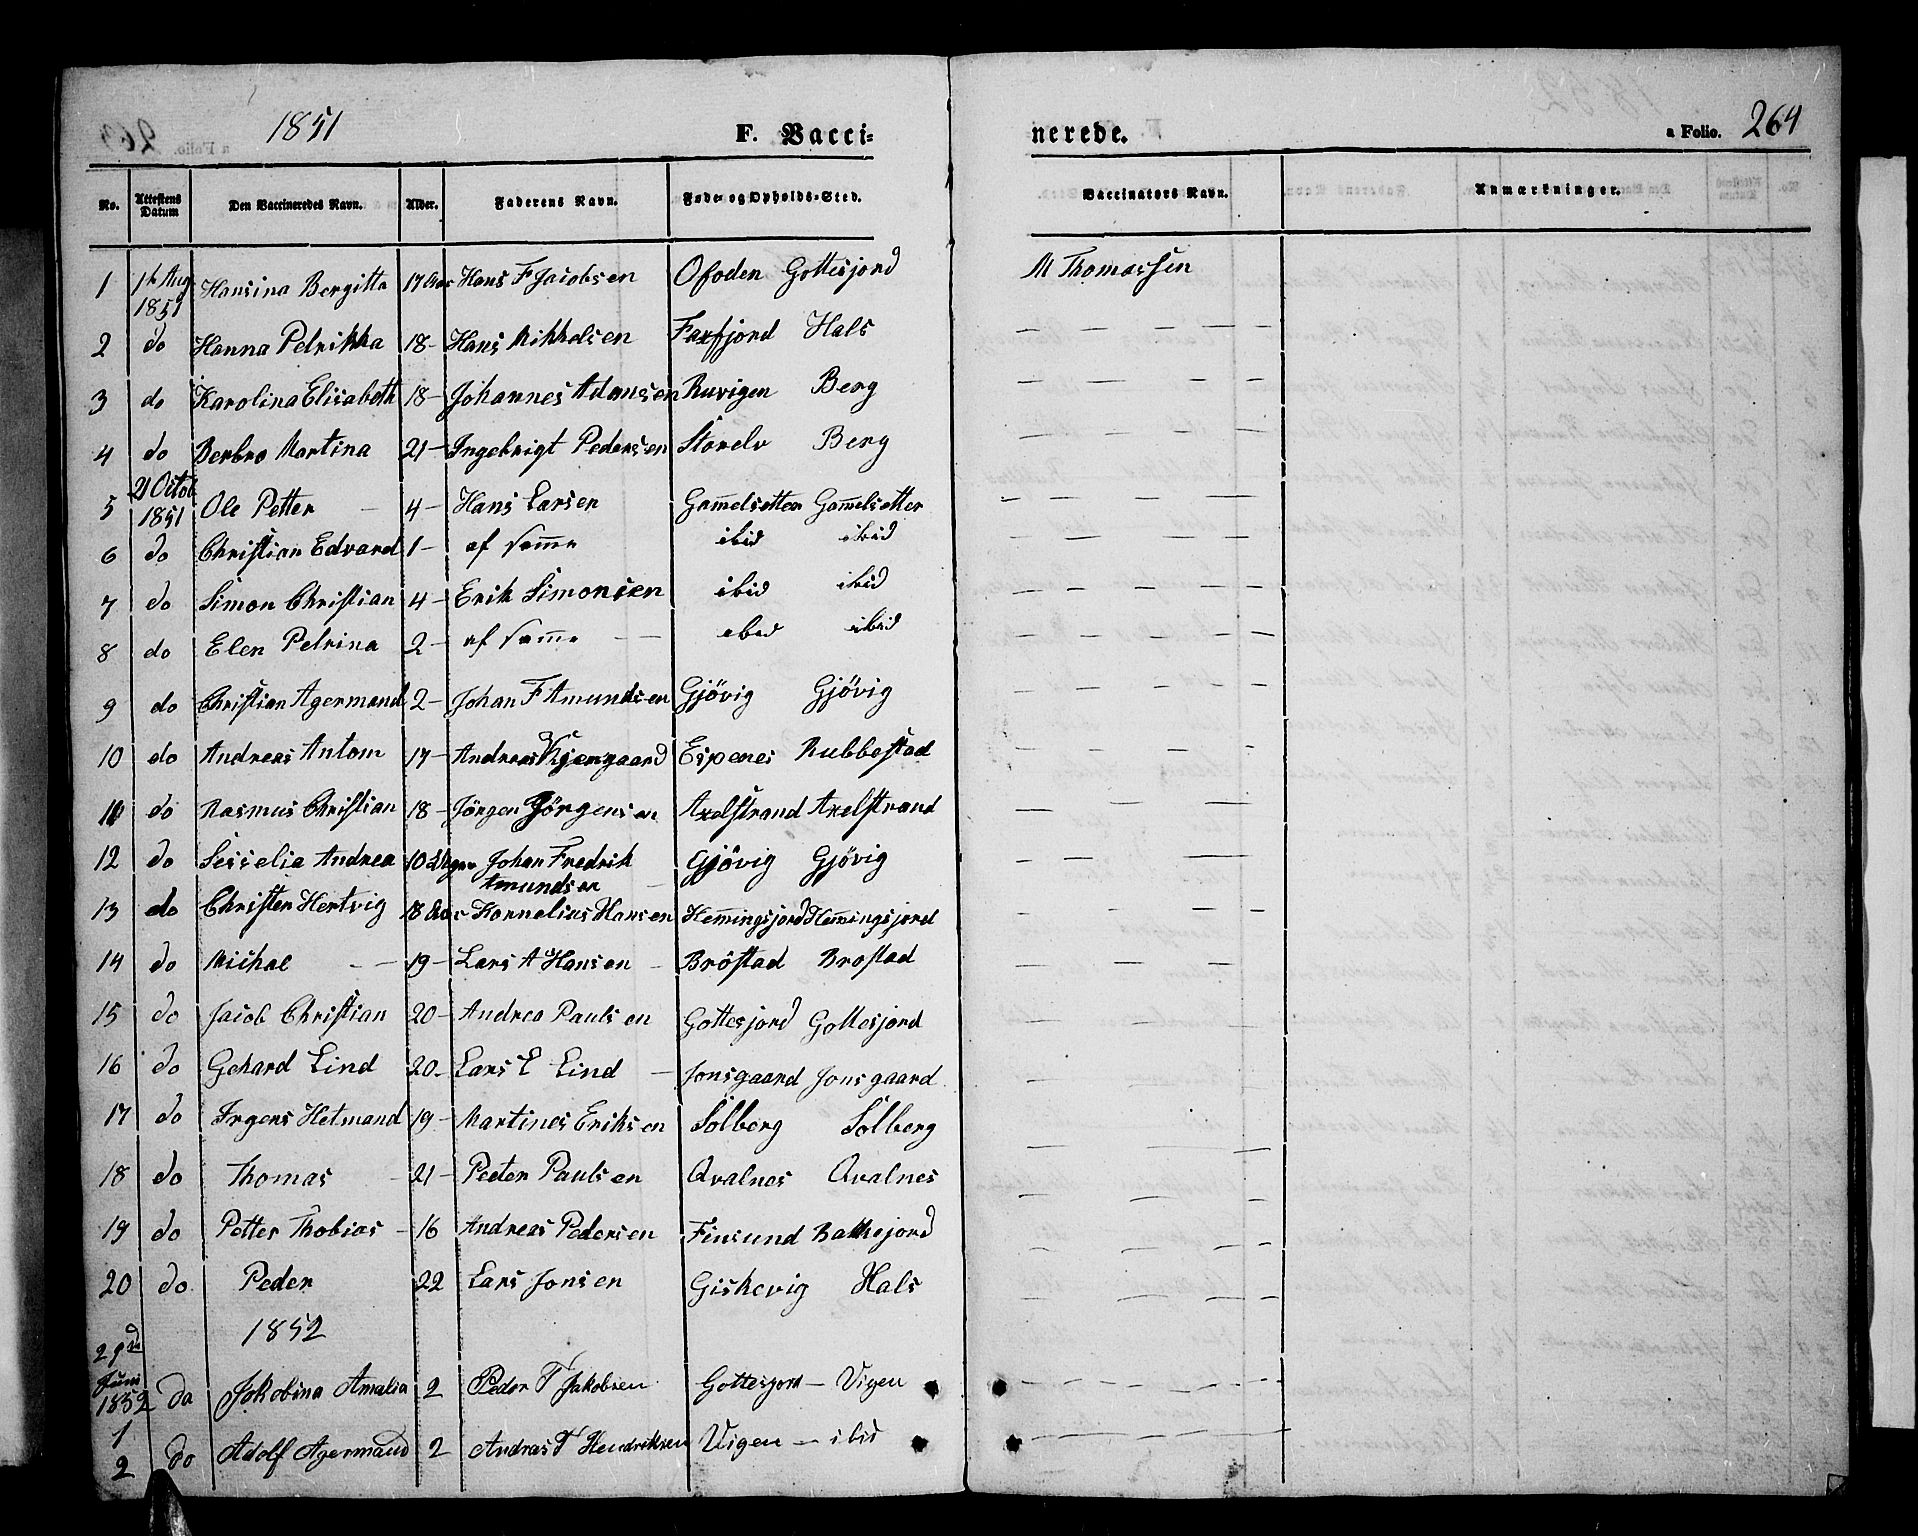 1851 F. Vacci= nerede. a Folio. 264
No. Attestens Datum Den Vaccineredes Navn. Alder. Faderens Navn. Føde- og Opholds-Sted. Vaccinators Navn. Anmærkninger.
1 Aug 1851 Hansina Bergitta 17 Aar Hans F Jacobsen Ofoden Gottesjord M Thomassen
2 do Hanna Petrikka 18 - Hans Mikkelsen Faxfjord Hals
3 do Karolina Elisabeth 18 - Johannes Adamsen Ruvigen Berg
4 do Berbro Martina 21 - Ingebrigt Pedersen Storelv Berg
5 21 Octob 1851 Ole Petter - 4 - Hans Larsen Gam̄elsetter Gam̄elsetter
6 do Christian Edvard 1 - af sam̄e ibid ibid
7 do Simon Christian 4 - Erik Simonsen ibid ibid
8 do Elen Petrina 2 - af sam̄e - - ibid ibid
9 do Christian Agermand 2 - Johan F Amundsen Gjövig Gjövig
10 do Andreas Antom 17 - Andreas Espenes Rubbestad
11 do Rasmus Christian 18 - Jörgen Jörgensen Axelstrand Axelstrand
12 do Sesselia Andrea 10 Johan Fredrik Amundsen - Gjövig Gjövig
13 do Christen Hertvig 18 Aar Kornelius Hansen Hem̄ingsjord Hem̄ingsjord
14 do Michal - - 19 - Lars A Hansen - Bröstad Brostad
15 do Jacob Christian 20 - Andrea Paulsen Gottesjord Gottesjord
16 do Gehard Lind 20 - Lars E Lind - Jonsgaard Jonsgaard
17 do Irgens Hetmand 19 - Martines Eriksen Solberg Solberg
18 do Thomas - 21 - Peeter Paulsen Qvalnes Qvalnes
19 do Petter Thobias - 16 Andreas Pedersen Finsund Bakkejord
20 do Peder 22 Lars Jonsen Giskevig Hals
1852
29de Juni 1852
1 do Jokobina Amalia 2 Peder T Jakobsen Gottesjord - Vigen
2 do Adolf Agermand 2 Andras T Hendriksen Vigen - ibid